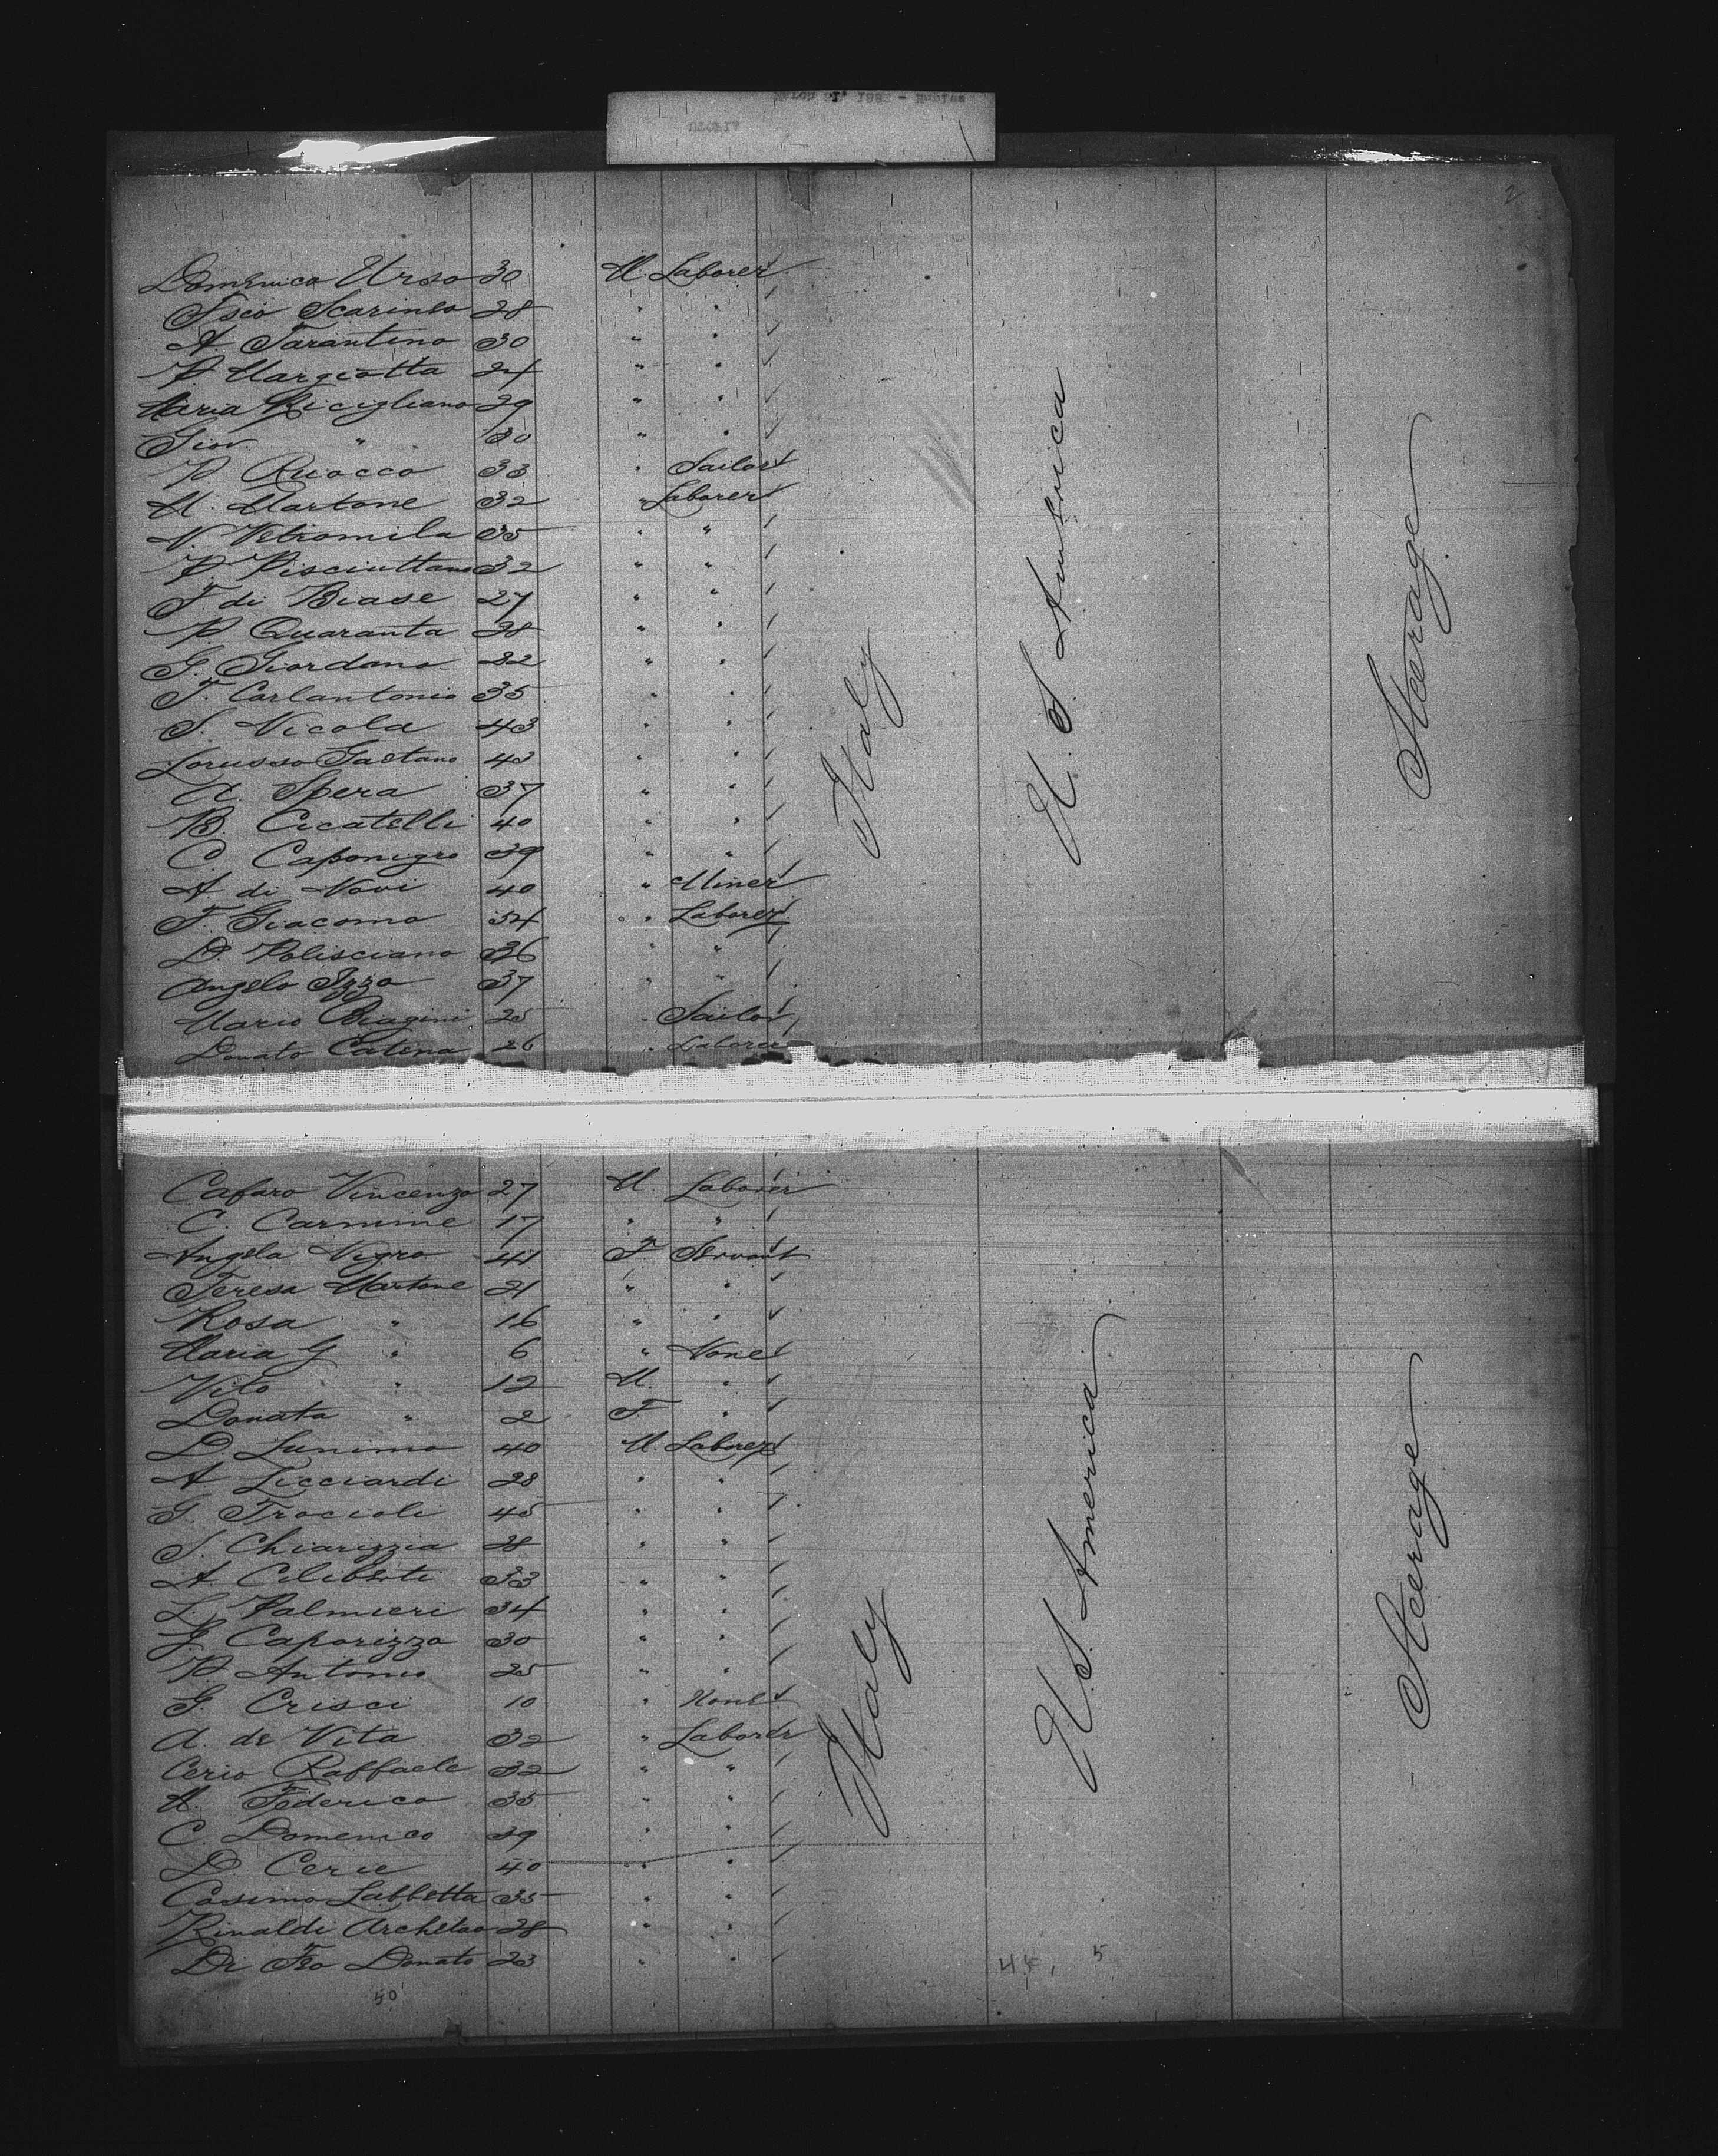 2
Domenico Urso 30 M. Laborer
Fsco Scarinto 28 " "
A. Tarantino 30 " "
P. Margiotta 24 " "
Maria Ricigliano 29 " "
Giov. " 30 " "
P. Ruocco 33 " Sailor
M. Martone 32 " Laborer
N. Vetromila 35 " "
P. Pisciuttano 32 " "
F. di Biase 27 " "
P. Quaranta 28 " "
G. Giordano 32 " "
F. Carlantonio 35 " "
S. Nicola 43 " "
Lorusso Gaetano 43 " "
A. Spera 37 " "
B. Cicatelli 40 " "
C. Caponigro 39 " "
A. di Novi 40 " Miner
F. Giacomo 34 " Laborer
D. Polisciano 36 " "
Angelo Izzo 37 " "
Mario Biagini 25 " Sailor
Donato Catena 26 " Laborer
Italy
U. S. America
Steerage
Cafaro Vincenzo 27 M. Laborer
C. Carmine 17 " "
Angela Nigro 44 F Servant
Teresa Martone 21 " "
Rosa " 16 " "
Maria G " 6 " None
Vito " 12 M. "
Donata " 2 F "
D. Lunimo 40 M. Laborer
A Licciardi 28 " "
G. Trocioli 45 " "
S. Chiarizzia 28 " "
A. Ciliberti 33 " "
L. Palmieri 34 " "
G. Caporizzo 30 " "
P. Antonio 25 " "
G. Crisci 10 " None
A. de Vita 32 " Laborer
Cerio Raffaele 32 " "
M. Federico 35 " "
C. Domenico 39 " "
D. Cerie 40 " "
Cosimo Labbetta 35 " "
Rinaldi Archelao 28 " "
Di Donato 23 " "
Italy
U. S. America
Steerage
50
45, 5